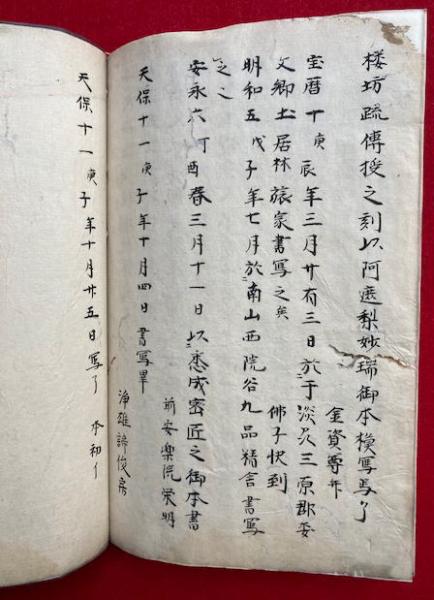 楼坊疏傳授之刻以阿遮梨妙瑞御本模寫焉了
金資尊年
宝曆十庚辰年三月廿有三日於于淡州三原郡委
文鄉土居林旅家書寫之矣 佛子快到
明和五戊子年七月於南山西院谷九品精舍書寫
之之
安永六丁酉春三月十一日以悉成密匠之御本書
前安樂院栄明
天保十一庚子年十月四日書寫畢
淨雄諦俊房
天保十一庚子年十月廿五日寫了 本初